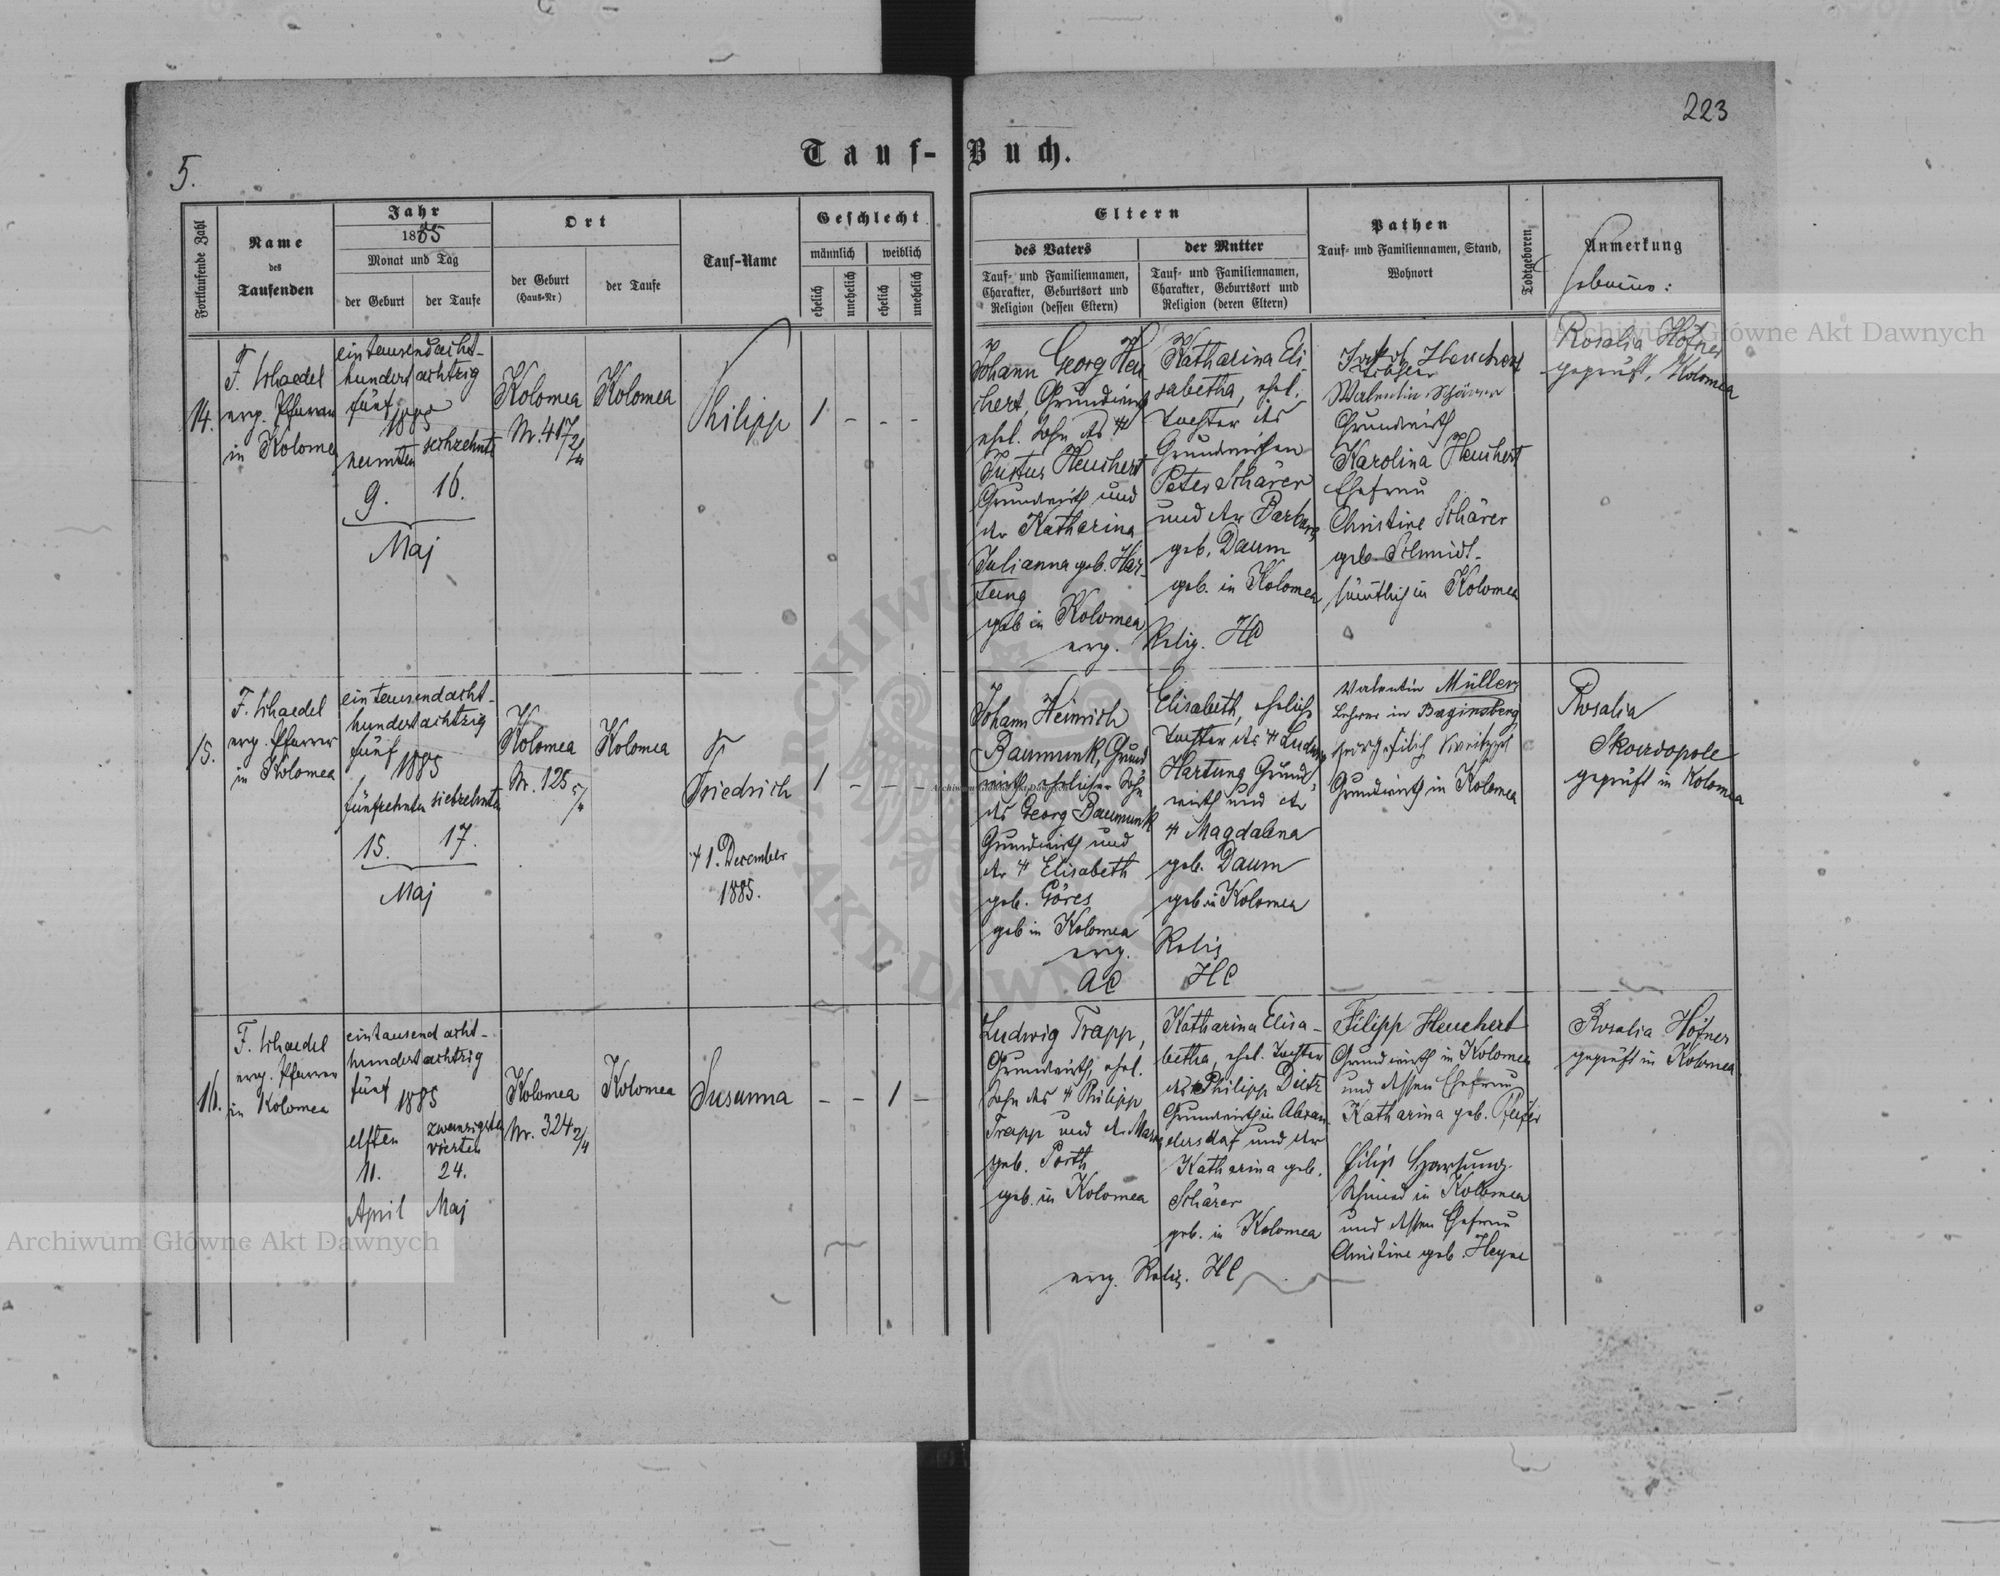 223
5.
Tauf-Buch.
Fortlaufende Zahl
Name
des
Taufenden
Jahr
1885
Monat und Tag
der Geburt
der Taufe
Ort
der Geburt
(Haus-Nr)
der Taufe
Tauf-Name
Geschlecht
männlich
weiblich
ehelich
unehelich
ehelich
unehelich
Eltern
des Vaters
Tauf- und Familiennamen,
Charakter, Geburtsort und
Religion (dessen Eltern)
der Mutter
Tauf- und Familiennamen,
Charakter, Geburtsort und
Religion (deren Eltern)
Pathen
Tauf- und Familiennamen, Stand,
Wohnort
Todtgeboren
Anmerkung
14.
erg. Pfarrer
in Kolomea
eintausendacht-
hundert achtzig
fünf
1885
neunten
sechzehnte
9.
16.
Maj
Kolomea
Nr. 417
Kolomea
Philipp
1 - - -
Johann Georg Heu
chert, Grundwirth
ehel. Sohn des
Justus Heuchert
Grundwirth und
der Katharina
Julianna geb. Har-
tung
geb in Kolomea
Katharina Eli-
sabetha, ehel.
Tochter des
Grundwirthen
Peter Schärer
und der Barbara
geb. Daum
geb. in Kolomea
erg. Relig. HC
Jakob Heuchert
Valentin Schärer
Grundwirth
Karolina Heuchert
Ehefrau
Christine Schärer
geb. Schmidt
sämtlich in Kolomea
Rosalia Höfner
geprüft, Kolomea
15.
erg. Pfarrer
in Kolomea
eintausendacht-
hundert achtzig
fünf
1885
fünfzehnten siebzehnte
15.
17.
Maj
Kolomea
Nr. 125
Kolomea
Friedrich
1. December
1885.
1 - - -
Johann Heinrich
Baumunk, Grund
wirth, ehelicher Sohn
des Georg Baumunk
Grundwirth und
der Elisabeth
geb. Göres
geb in Kolomea
Elisabeth, eheliche
Tochter des Ludwig
Hartung Grund
wirth und der
Magdalena
geb. Daum
geb in Kolomea
erg. Relig
AC HC
Valentin Müller
Lehrer in Baginsberg
Grundwirth in Kolomea
Rosalia
Skowdopole
geprüft in Kolomea
16.
erg. Pfarrer
in Kolomea
eintausend acht-
hundert achtzig
fünf
1885
elften
zwanzigsten
vierten
11.
24.
April
Maj
Kolomea
Nr. 324 2/4
Kolomea
Susanna
- - 1 -
Ludwig Trapp,
Grundwirth, ehel.
Sohn des Philipp
Trapp und der
geb. Porth
geb. in Kolomea
Katharina Elisa-
betha, ehel. Tochter
des Philipp Dietz
Grundwirth in
und der
Katharina geb.
Schärer
geb. in Kolomea
erg. Relig. HC
Filipp Heuchert
Grundwirth in Kolomea
und dessen Ehefrau
Katharina geb. Pfeifer
Filip Hartung
Schmied in Kolomea
und dessen Ehefrau
Christine geb. Heyne
Rosalia Höfner
geprüft in Kolomea
Archiwum Główne Akt Dawnych
Archiwum Główne Akt Dawnych